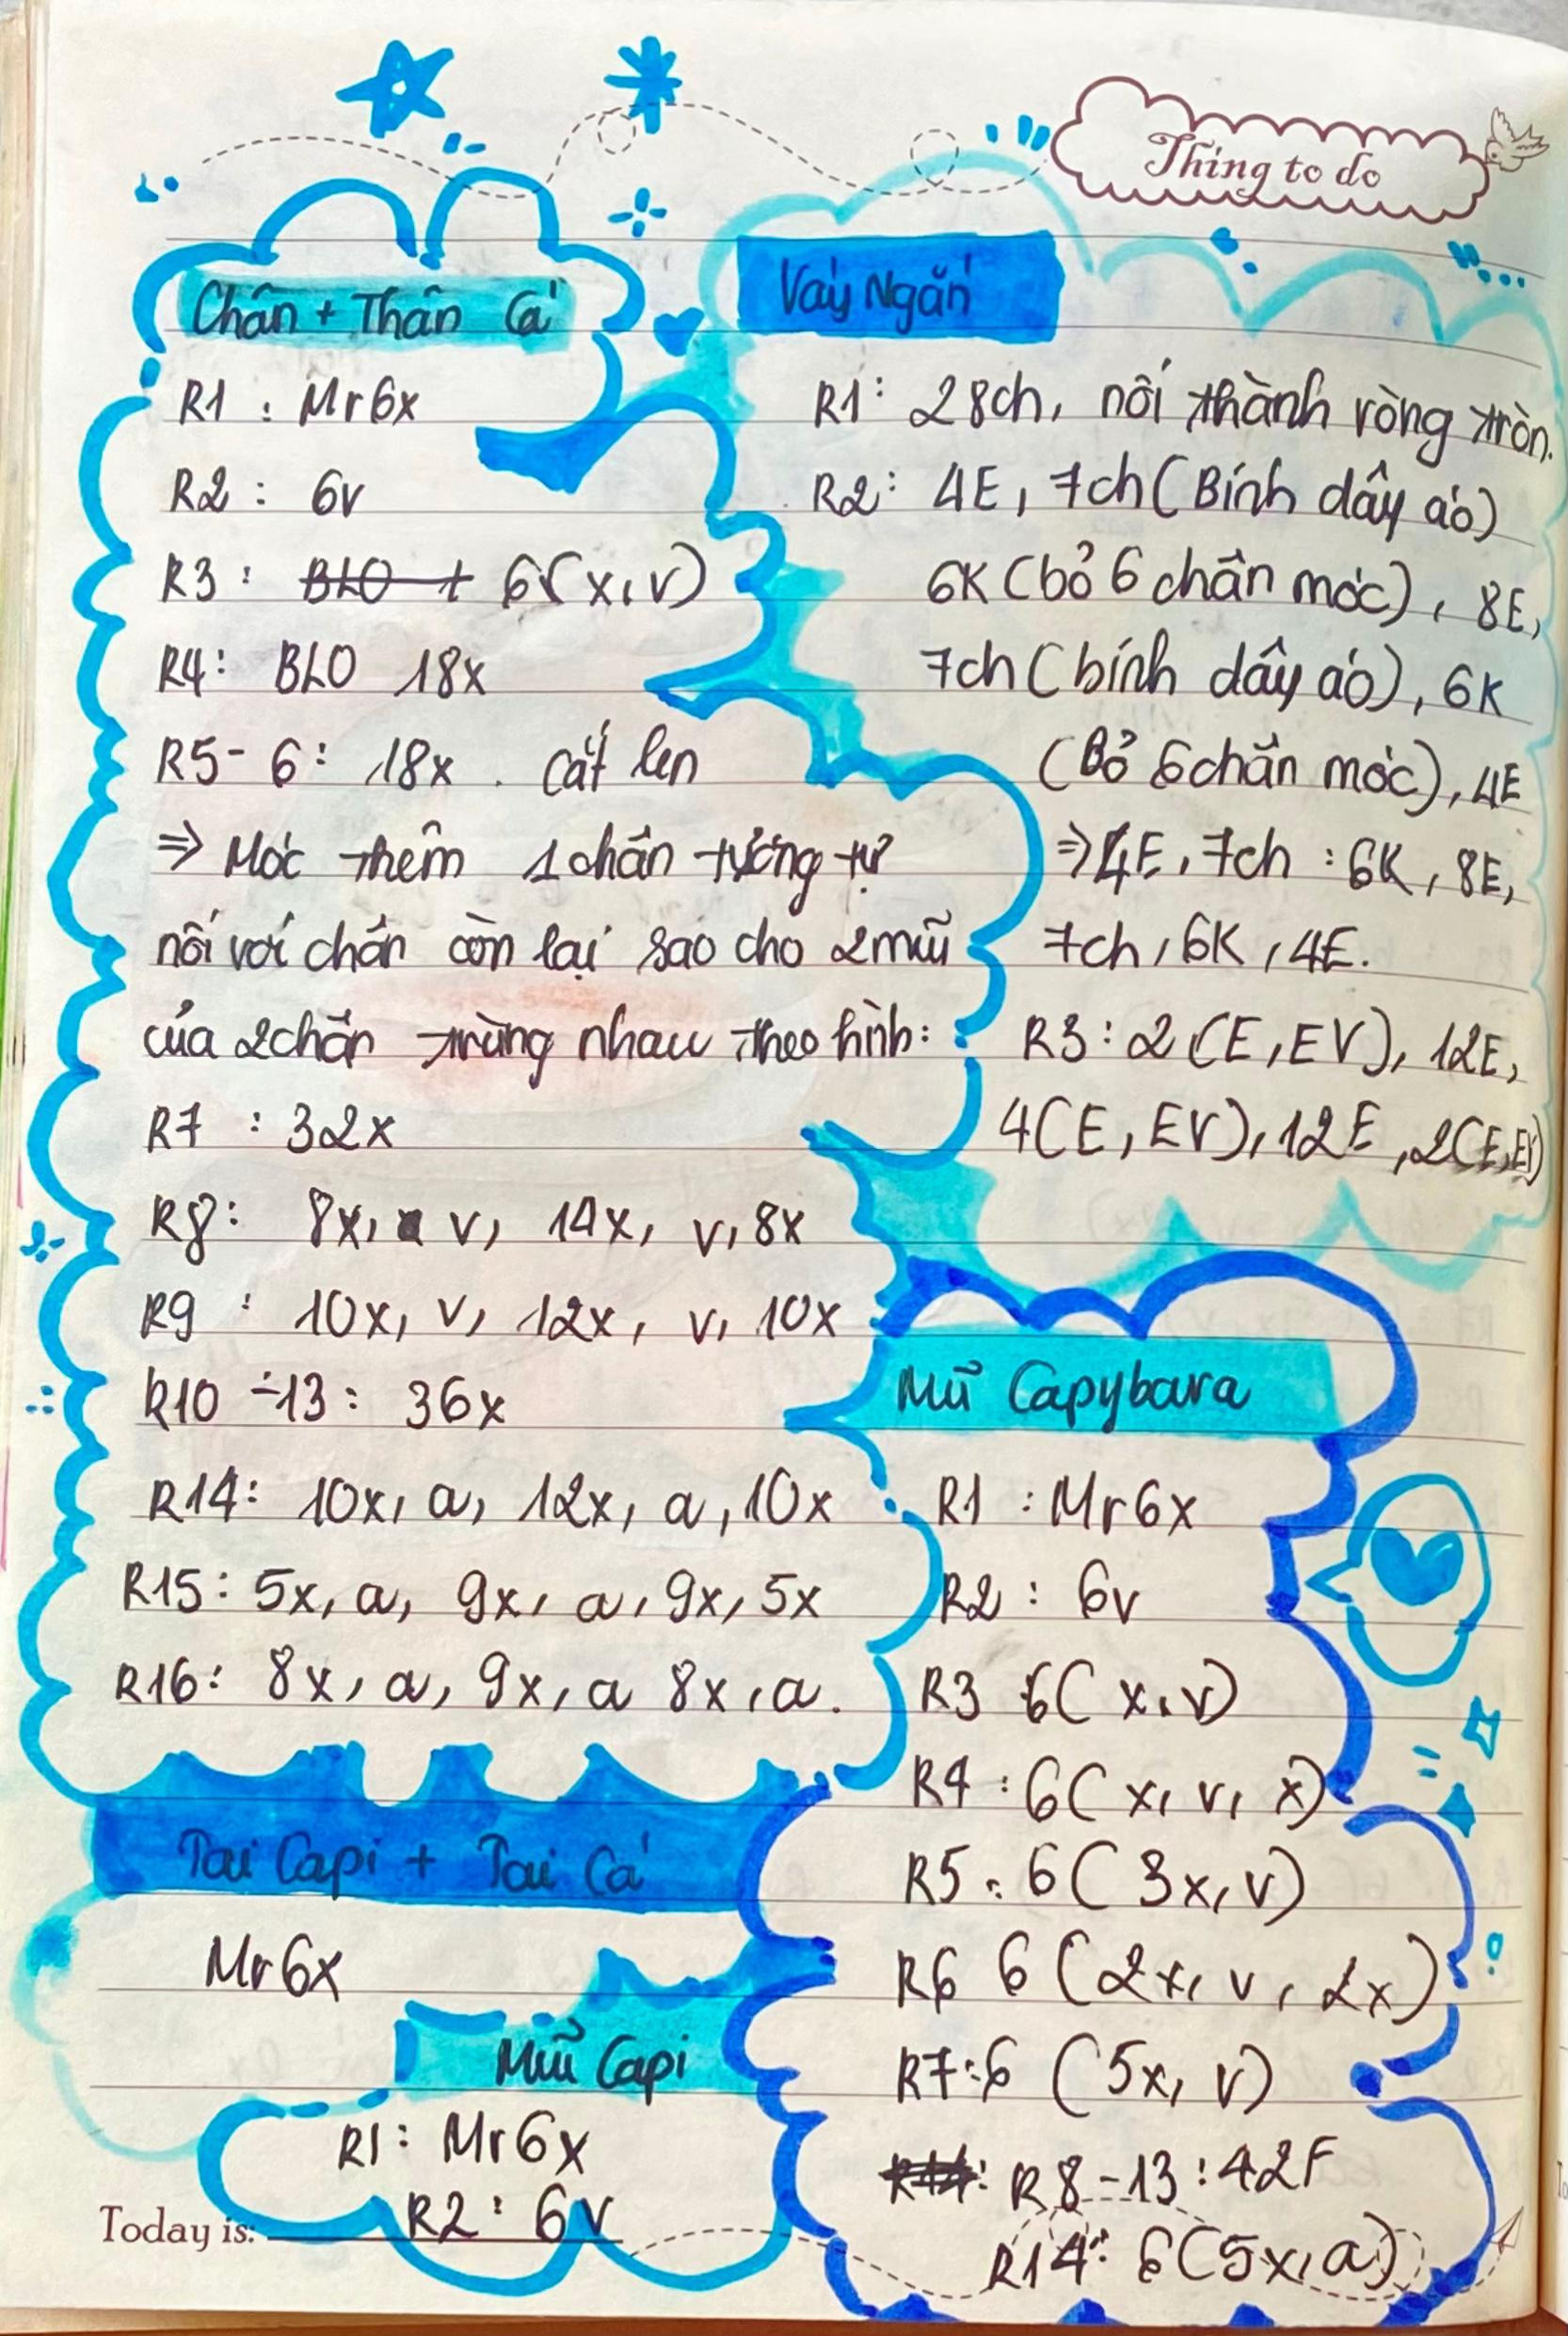 Thing to do
Chân + Thân Cá
R1 : Mr6x
R2 : 6v
R3 : BLO + 6(x,v)
R4: BLO 18x
R5- 6: 18x . Cắt len
=> Móc thêm 1 chân tương tự
nối với chân còn lại sao cho 2 mũi
của 2 chân trùng nhau theo hình:
R7 : 32x
R8: 8x, v, 14x, v, 8x
R9 : 10x, v, 12x, v, 10x
R10 ÷13: 36x
R14: 10x, a, 12x, a, 10x
R15: 5x, a, 9x, a, 9x, 5x
R16: 8x, a, 9x, a 8x, a.
Váy Ngắn
R1: 28ch, nối thành vòng tròn.
R2: 4E, 7ch (Bính dây áo)
6K (bỏ 6 chân móc), 8E,
7ch (bính dây áo), 6K
(Bỏ 6 chân móc), 4E
=> 4E, 7ch : 6K, 8E,
7ch, 6K, 4E.
R3: 2 (E, EV), 12E,
4(E, EV), 12E, 2(E,EV)
Mũ Capybara
R1 : Mr6x
R2 : 6v
R3 6( x, v)
R4 : 6( x, v, x)
R5 : 6( 3x, v)
R6 6 (2x, v, 2x)
R7: 6 (5x, v)
R14: R8-13: 42F
R14: 6(5x, a)
Tai Capi + Tai Cá
Mr6x
Mũi Capi
R1: Mr6x
R2: 6v
Today is: